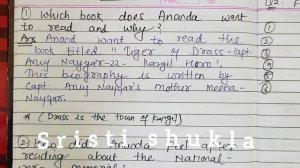 ① Which book does Ananda want
to read and why?
Ans Anand want to read the
book titled "Tiger of Drass-Capt.
Anuj Nayyar-22- Kargil Hero".
This biography is written by
Capt Anuj Nayyar's mother Meena-
Nayyar.
* (Drass is the town of Kargil)
Sristi shukla
2) How did Ananda feel after
reading about the National
war memorial?